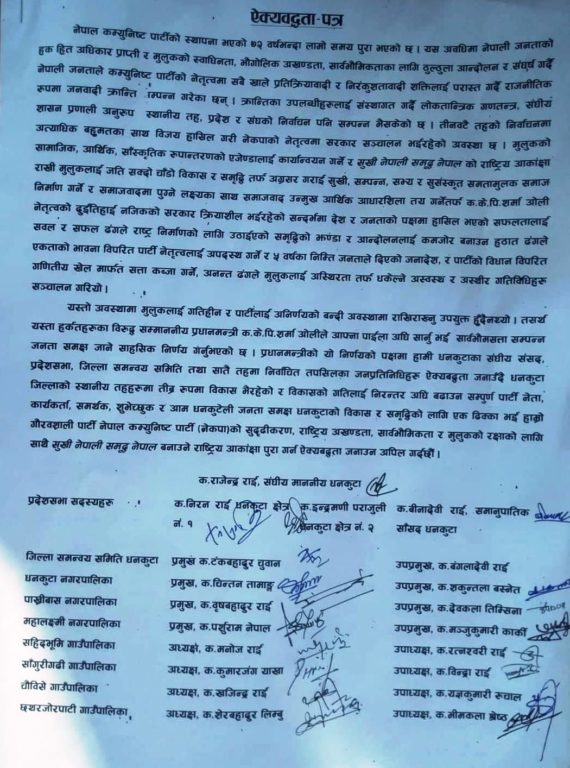 ऐक्यवद्धता-पत्र
नेपाल कम्युनिष्ट पार्टीको स्थापना भएको ७२ वर्षभन्दा लामो समय पुरा भएको छ । यस अवधिमा नेपाली जनताको
हक हित अधिकार प्राप्ती र मुलुकको स्वाधिनता, भौगोलिक अखण्डता, सार्वभौमिकताका लागि ठुल्ठुला आन्दोलन र संघर्ष गर्दै
नेपाली जनताले कम्युनिष्ट पार्टीको नेतृत्वमा सबै खाले प्रतिक्रियावादी र निरंकुशतावादी शक्तिलाई परास्त गर्दै राजनीतिक
रूपमा जनवादी क्रान्ति म्पन्न गरेका छन् । क्रान्तिका उपलब्धीहरूलाई संस्थागत गर्दै लोकतान्त्रिक गणतन्त्र, संघीय
शासन प्रणाली अनुरुप स्थानीय तह, प्रदेश र संघको निर्वाचन पनि सम्पन्न भैसकेको छ । तीनवटै तहको निर्वाचनमा
अत्याधिक बहुमतका साथ विजय हासिल गरी नेकपाको नेतृत्वमा सरकार सञ्चालन भईरहेको अवस्था छ । मुलुकको
सामाजिक, आर्थिक, साँस्कृतिक रूपान्तरणको एजेण्डालाई कार्यान्वयन गर्ने र सुखी नेपाली समृद्ध नेपाल को राष्ट्रिय आकांक्षा
राखी मुलुकलाई जति सक्दो चाँडो विकास र समृद्धि तर्फ अग्रसर गराई सुखी, सम्पन्न, सभ्य र सुसंस्कृत समतामुलक समाज
निर्माण गर्ने र समाजवादमा पुग्ने लक्ष्यका साथ समाजवाद उन्मुख आर्थिक आधारशिला तय गर्नेतर्फ क.के.पि.शर्मा ओली
नेतृत्वको दुईतिहाई नजिकको सरकार क्रियाशील भईरहेको सन्दर्भमा देश र जनताको पक्षमा हासिल भएको सफलतालाई
सवल र सफल ढंगले राष्ट्र निर्माणको लागि उठाईएको समृद्धिको झण्डा र आन्दोलनलाई कमजोर बनाउन हठात ढंगले
एकताको भावना विपरित पार्टी नेतृत्वलाई अपदस्थ गर्ने र ५ वर्षका निम्ति जनताले दिएको जनादेश, र पार्टीको विधान विपरित
गणितीय खेल मार्फत सत्ता कब्जा गर्ने, अनन्त ढंगले मुलुकलाई अस्थिरता तर्फ धकेल्ने अस्वस्थ र अस्थीर गतिविधिहरू
सञ्चालन गरियो ।
यस्तो अवस्थामा मुलुकलाई गतिहीन र पार्टीलाई अनिर्णयको बन्दी अवस्थामा राखिराख्नु उपयुक्त हुँदैनथ्यो । तसर्थ
यस्ता हर्कतहरूका विरुद्ध सम्माननीय प्रधानमन्त्री क.के.पि.शर्मा ओलीले आफ्ना पाईला अघि सार्नु भई सार्वभौमसत्ता सम्पन्न
जनता समक्ष जाने साहसिक निर्णय गर्नुभएको छ । प्रधानमन्त्रीको यो निर्णयको पक्षमा हामी धनकुटाका संघीय संसद,
प्रदेशसभा, जिल्ला समन्वय समिति तथा सातै तहमा निर्वाचित तपसिलका जनप्रतिनिधिहरू ऐक्यबद्धता जनाउँदै धनकुटा
जिल्लाको स्थानीय तहहरूमा तीब्र रूपमा विकास भैरहेको र विकासको गतिलाई निरन्तर अघि बढाउन सम्पुर्ण पार्टी नेता,
कार्यकर्ता, समर्थक, शुभेच्छुक र आम धनकुटेली जनता समक्ष धनकुटाको विकास र समृद्धिको लागि एक ढिक्का भई हाम्रो
गौरवशाली पार्टी नेपाल कम्युनिष्ट पार्टी (नेकपा)को सुदृढीकरण, राष्ट्रिय अखण्डता, सार्वभौमिकता र मुलुकको रक्षाको लागि
साथै सुखी नेपाली समृद्ध नेपाल बनाउने राष्ट्रिय आकांक्षा पुरा गर्न ऐक्यबद्धता जनाउन अपिल गर्दछौं ।
क.राजेन्द्र राई, संघीय माननीय धनकुटा
प्रदेशसभा सदस्यहरू क.निरन राई धनकुटा क्षेत्र क.इन्द्रमणी पराजुली क.बीनादेवी राई, समानुपातिक
नं. १ धनकुटा क्षेत्र नं. २ साँसद धनकुटा
जिल्ला समन्वय समिति धनकुटा प्रमुख क.टंकबहादुर चुवान उपप्रमुख, क.बंगलादेवी राई
धनकुटा नगरपालिका प्रमुख, क.चिन्तन तामाङ्ग उपप्रमुख, क.शकुन्तला बस्नेत
पाख्रीबास नगरपालिका प्रमुख, क.वृषबहादुर राई उपप्रमुख, क.देवकला तिम्सिना
महालक्ष्मी नगरपालिका प्रमुख, क.पर्शुराम नेपाल उपप्रमुख, क.मञ्जुकुमारी कार्की
सहिदभूमि गाउँपालिका अध्यक्ष, क.मनोज राई उपाध्यक्ष, क.रत्नरवरी राई
साँगुरीगढी गाउँपालिका अध्यक्ष, क.कुमारजंग याखा उपाध्यक्ष, क.विन्द्रा राई
चौविसे गाउँपालिका अध्यक्ष, क.खजिन्द्र राई उपाध्यक्ष, क.यज्ञकुमारी रूचाल
छथरजोरपाटी गाउँपालिका अध्यक्ष, क.शेरबहादुर लिम्बु उपाध्यक्ष, क.भीमकला श्रेष्ठ